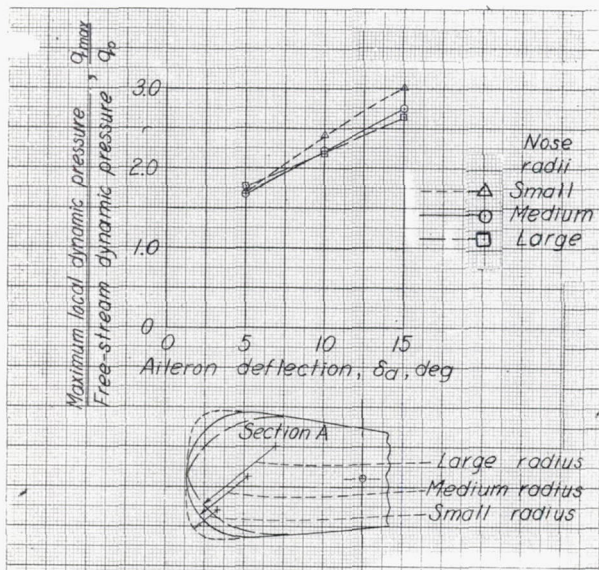 Maximum local dynamic pressure, qmax
Free-stream dynamic pressure, q0
3.0
2.0
1.0
0
0 5 10 15
Aileron deflection, δa, deg
Nose
radii
Small
Medium
Large
Section A
Large radius
Medium radius
Small radius